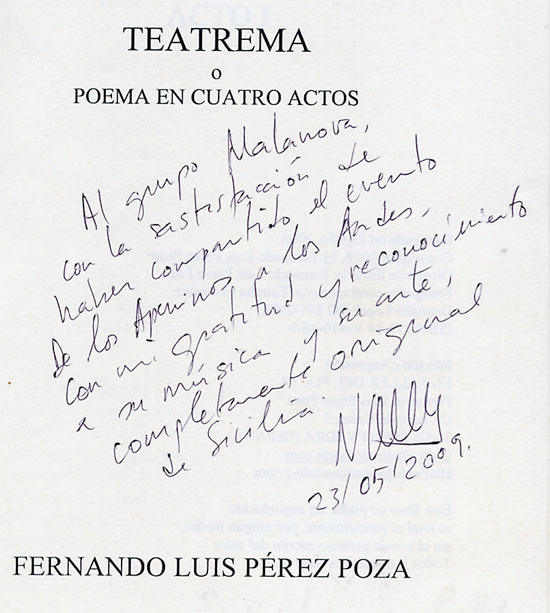 TEATREMA
o
POEMA EN CUATRO ACTOS
Al grupo Malanova,
con la sastisfacción de
haber compartido el evento
De los Apeninos a los Andes,
con mi gratitud y reconocimiento
a su música y su arte,
completamente original
de Sicilia
23/05/2009.
FERNANDO LUIS PÉREZ POZA